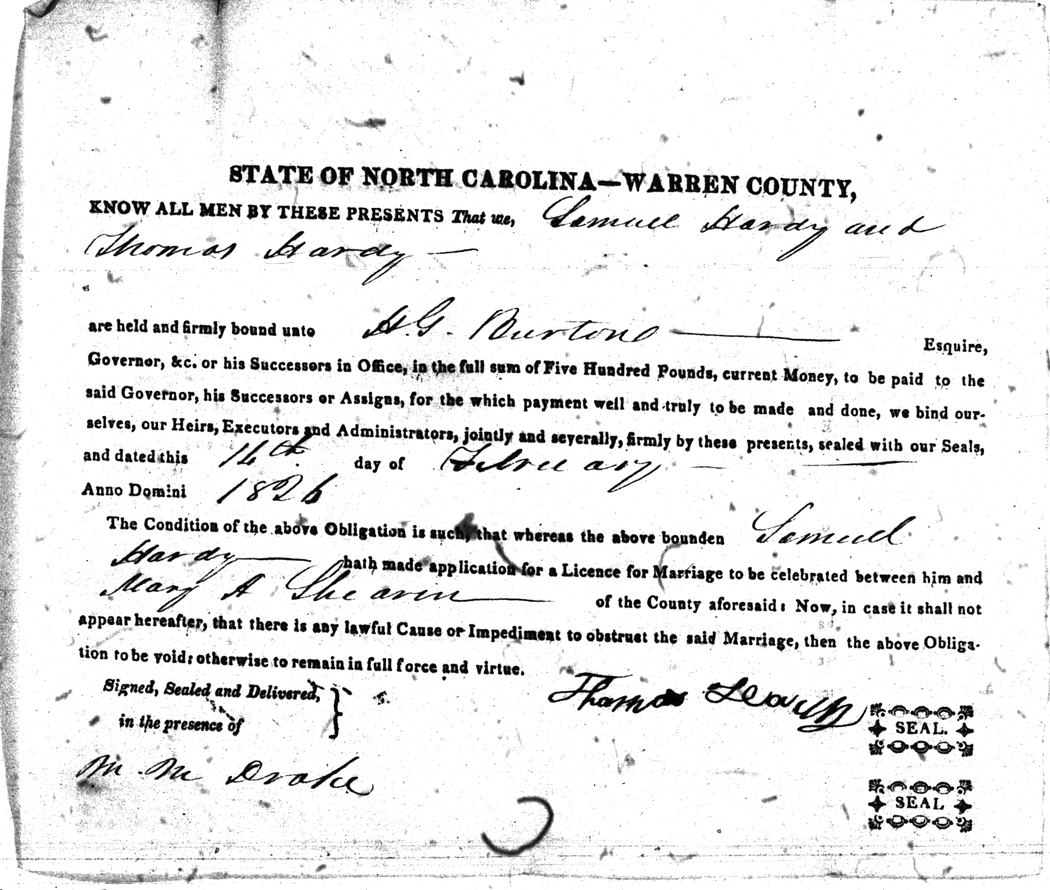 STATE OF NORTH CAROLINA—WARREN COUNTY,
KNOW ALL MEN BY THESE PRESENTS That we, Samuel Hardy and
Thomas Hardy —
are held and firmly bound unto H. G. Burton Esquire,
Governor, &c. or his Successors in Office, in the full sum of Five Hundred Pounds, current Money, to be paid to the
said Governor, his Successors or Assigns, for the which payment well and truly to be made and done, we bind our-
selves, our Heirs, Executors and Administrators, jointly and severally, firmly by these presents, sealed with our Seals,
and dated this 14th day of February —
Anno Domini 1826
The Condition of the above Obligation is such, that whereas the above bounden Samuel
Hardy hath made application for a Licence for Marriage to be celebrated between him and
Mary A Shearin of the County aforesaid: Now, in case it shall not
appear hereafter, that there is any lawful Cause or Impediment to obstruct the said Marriage, then the above Obliga-
tion to be void: otherwise to remain in full force and virtue.
Signed, Sealed and Delivered, }
in the presence of
Thomas Hardy SEAL.
M. M Drake
SEAL